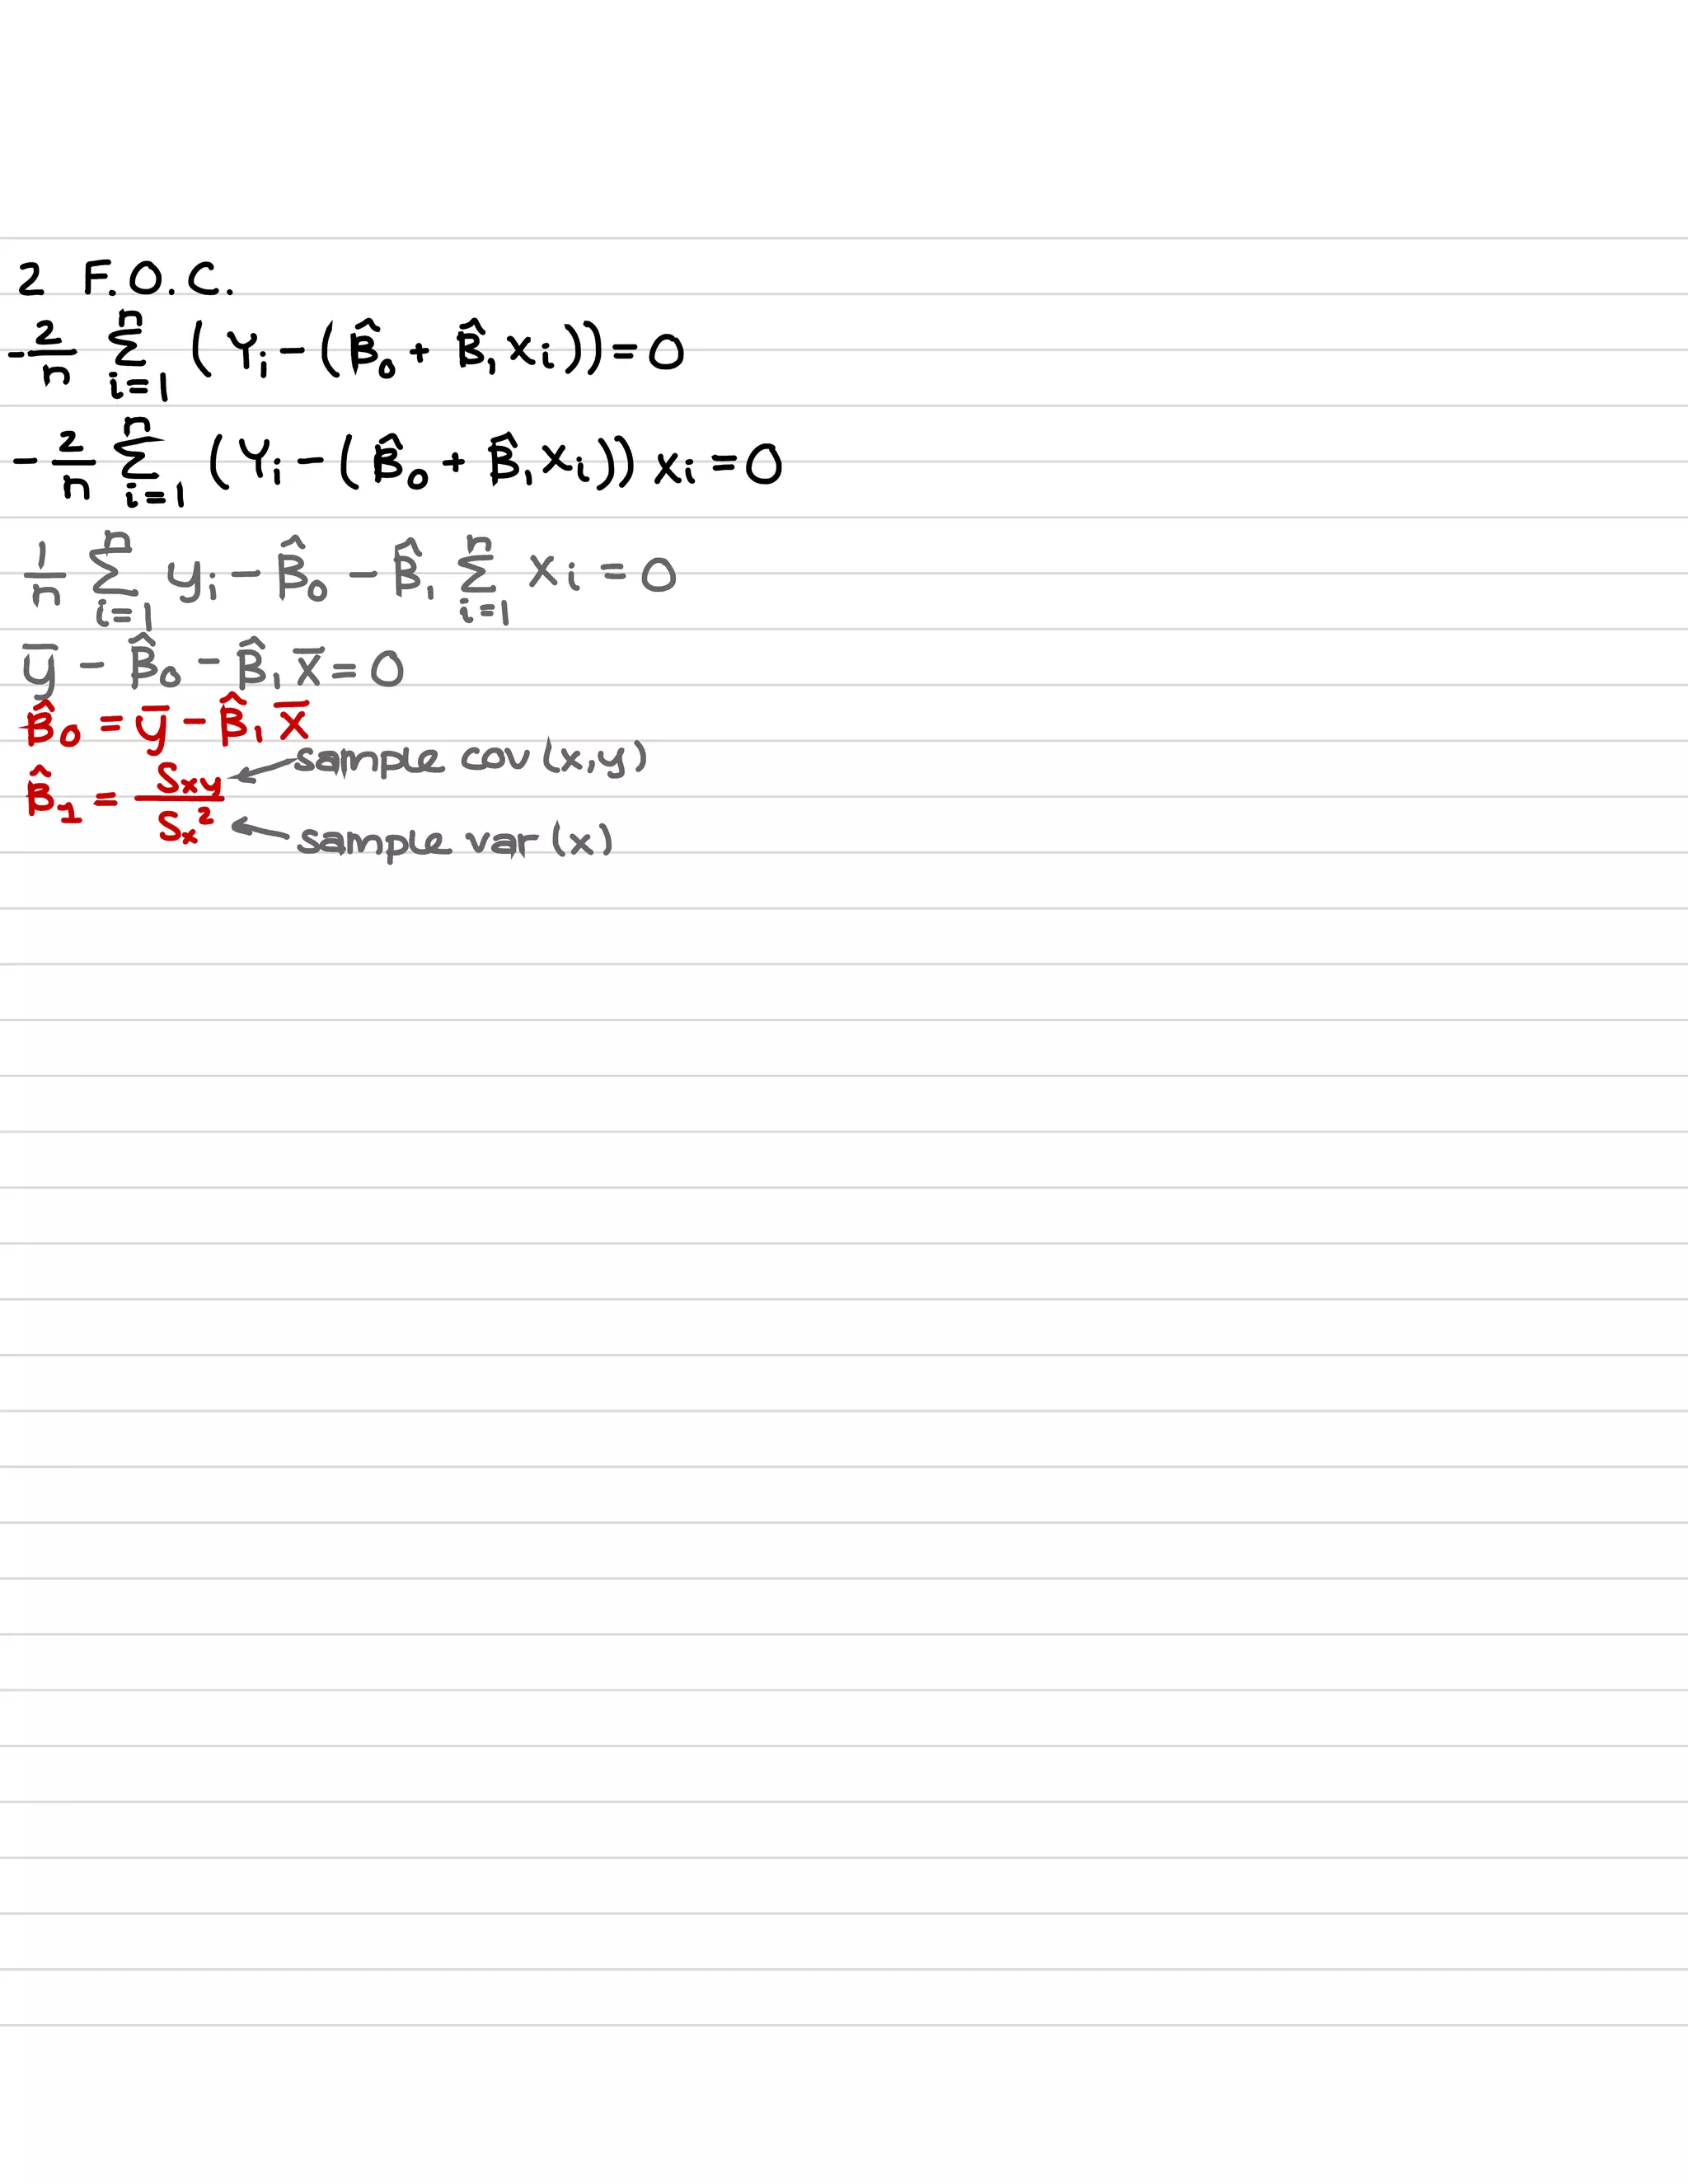 2 F.O.C.
-2/n Σ_{i=1}^{n} (Y_i - (β̂_0 + β̂_1 x_i)) = 0
-2/n Σ_{i=1}^{n} (Y_i - (β̂_0 + β̂_1 x_i)) x_i = 0
1/n Σ_{i=1}^{n} y_i - β̂_0 - β̂_1 Σ_{i=1}^{n} x_i = 0
ȳ - β̂_0 - β̂_1 x̄ = 0
β̂_0 = ȳ - β̂_1 x̄
β̂_1 = S_xy / S_x^2
← sample cov (x,y)
← sample var (x)